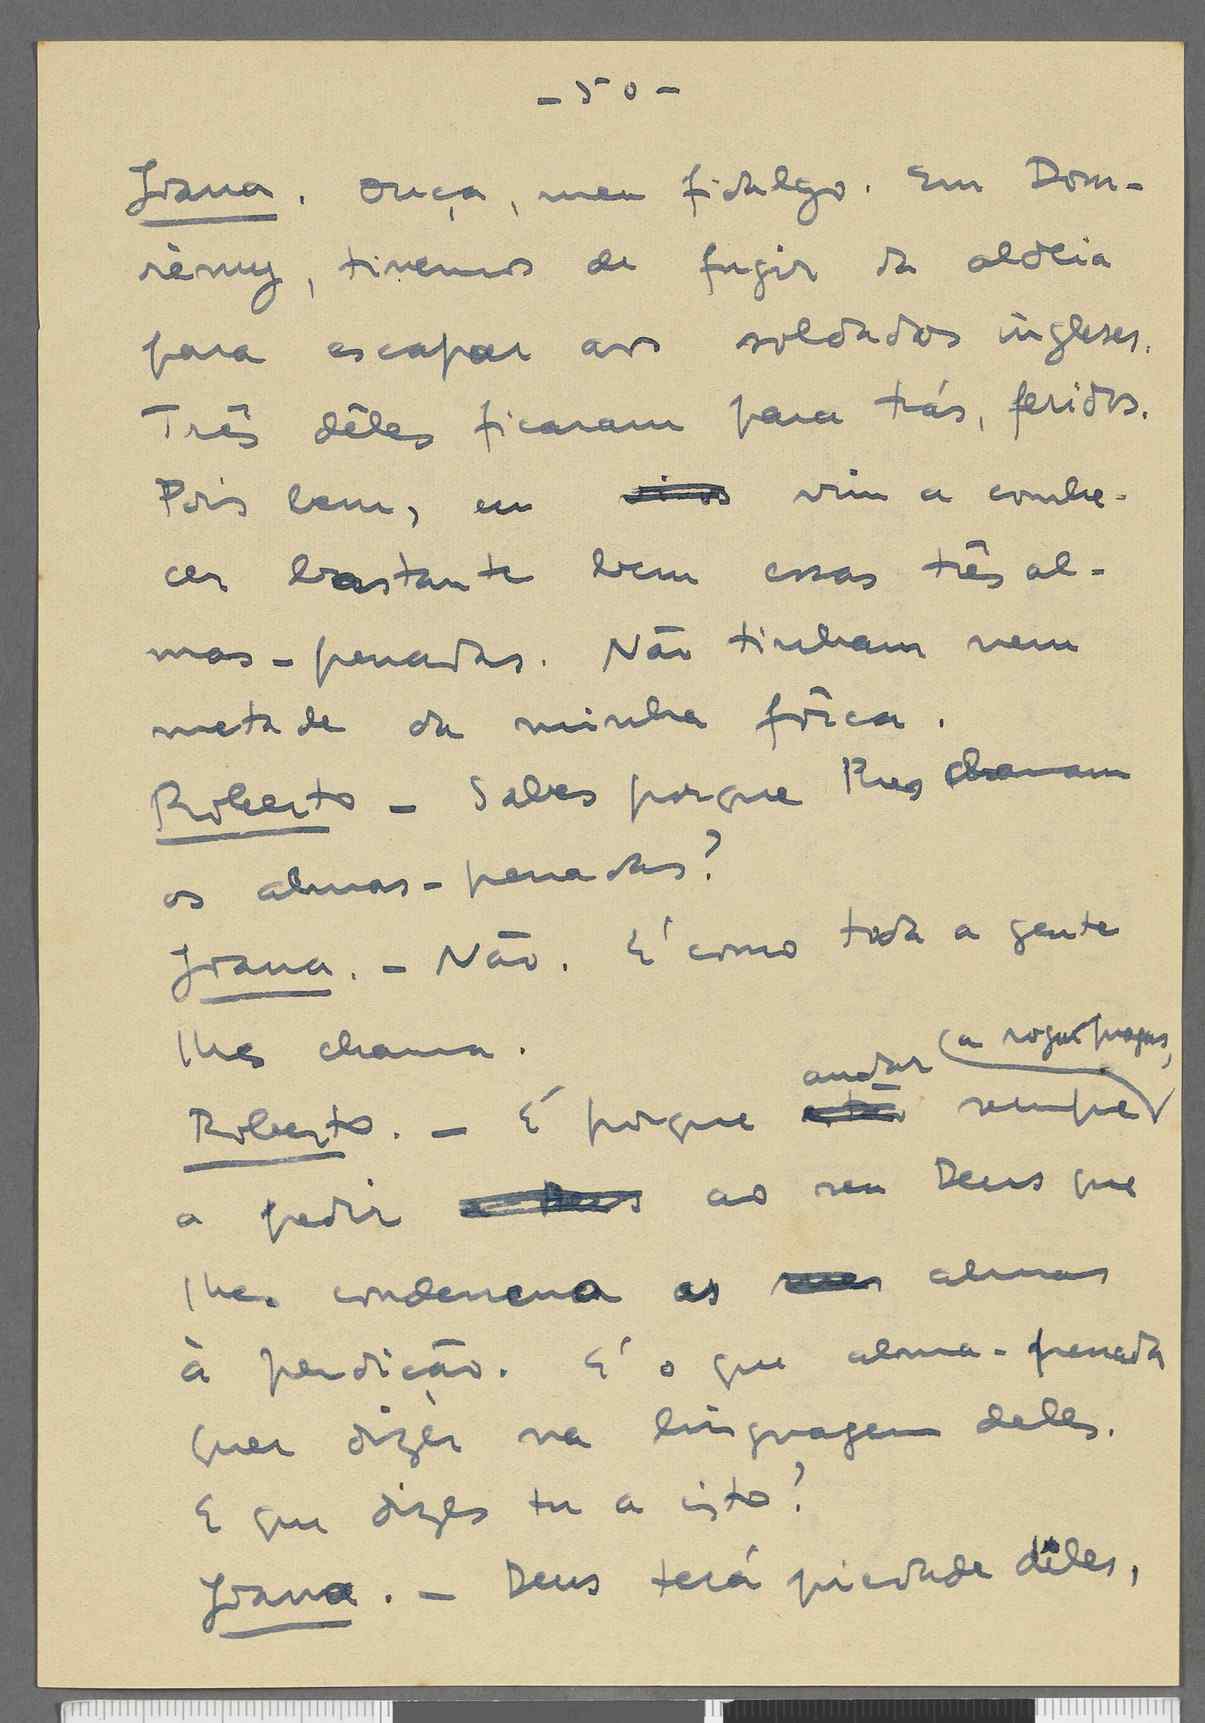 - 50 -
Joana. Ouça, meu fidalgo. Em Dom-
rèmy, tivemos de fugir da aldeia
para escapar aos soldados ingleses.
Três dêles ficaram para trás, feridos.
Pois bem, eu vim a conhe-
cer bastante bem essas três al-
mas-penadas. Não tinham nem
metade da minha fôrça.
Roberto - Sabes porque lhes chamam
os almas-penadas?
Joana. - Não. É como toda a gente
lhes chama.
andar (a rogar pragas,
Roberto. - É porque estão sempre
a pedir a Deus ao seu Deus que
lhes condenem as suas almas
à perdição. É o que alma-penada
quer dizer na linguagem deles.
E que dizes tu a isto?
Joana. - Deus terá piedade dêles,